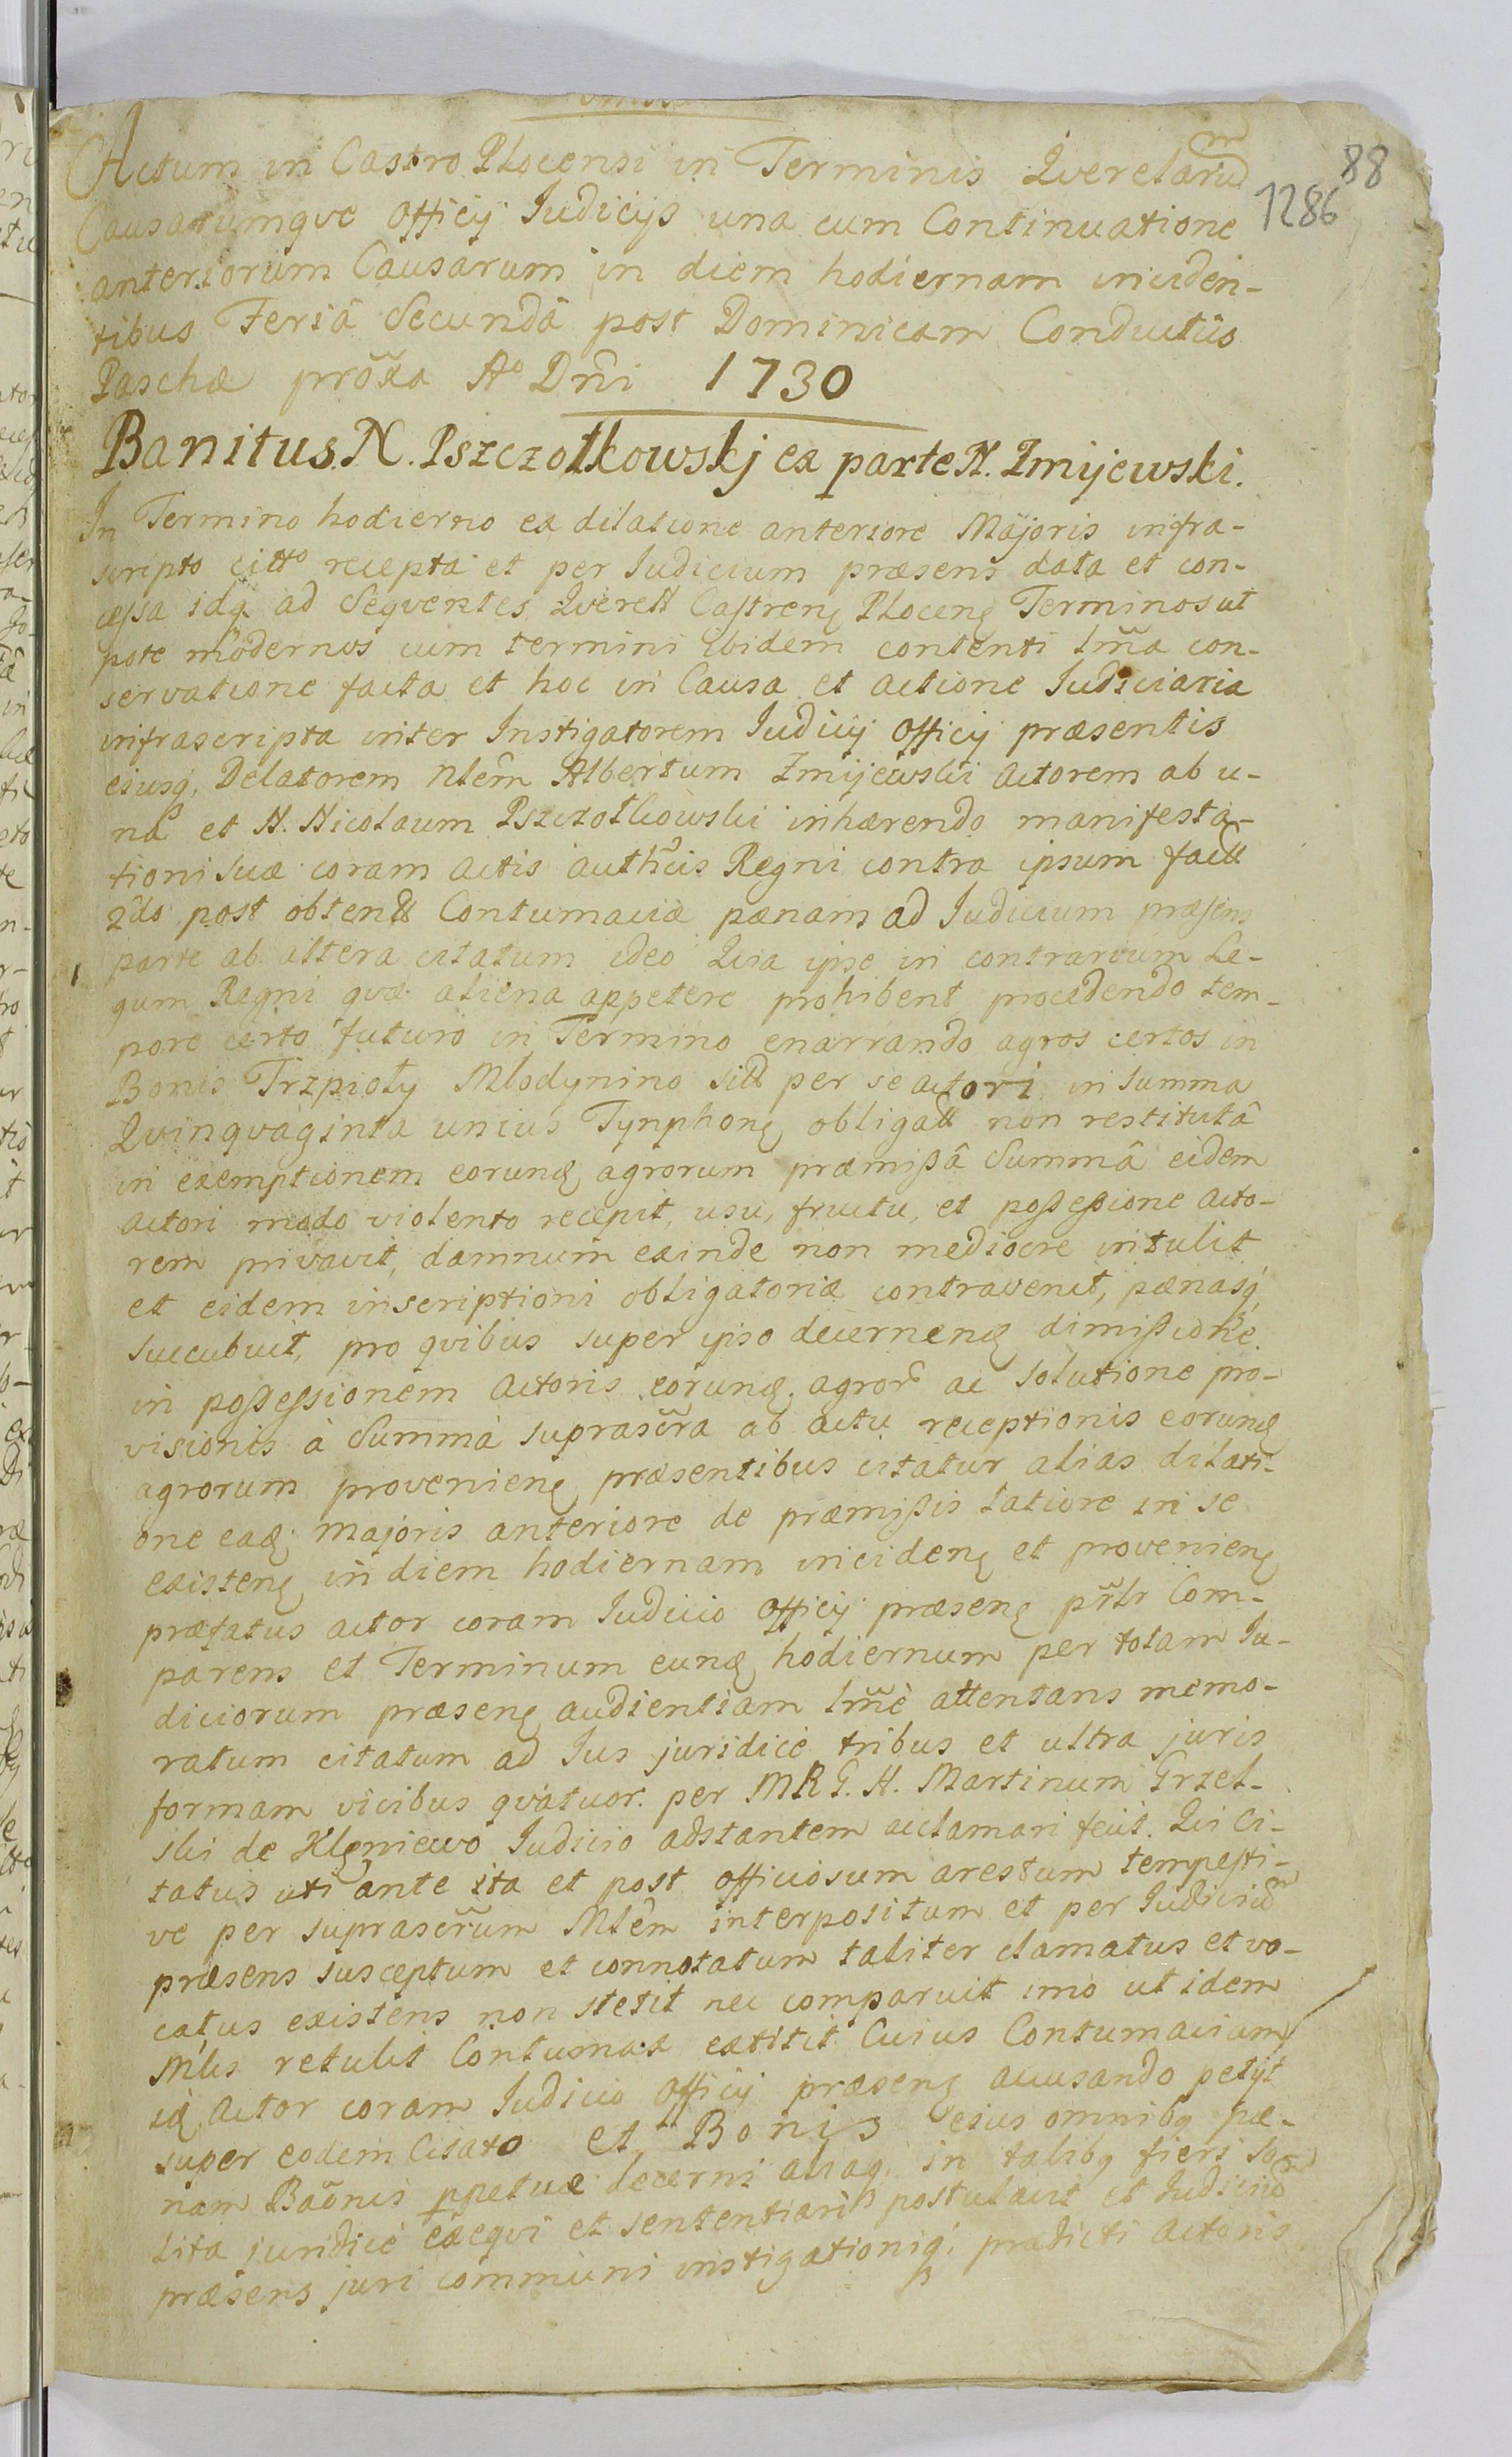 88
1286
Actum in Castro Plocensi in Terminis Qverelarum
Causarumqve Officij Judicijs una cum Continuatione
anteriorum Causarum in diem hodiernam inciden-
tibus Feriâ Secundâ post Dominicam Conductus
Paschæ prõxa Aº Dñi 1730
Banitus N. Pszczołkowskj ex parte N. Zmijewski.
In Termino hodierno ex dilatione anteriore Majoris infra-
scripto citto recepta et per Iudicium præsens data et con-
cessa idq ad seqventes Qverell Castrenʒ Plocenʒ Terminos ut
pote modernos cum termini ibidem contenti lm̃a con-
servatione facta et hoc in Causa et actione Iudiciaria
infrascripta inter Instigatorem Iudicij Officij præsentis
eiusq, Delatorem Nlem̃ Albertum Zmijewski actorem ab u-
na et N. Nicolaum Pszczołkowski inhærendo manifesta-
tioni suæ coram actis authc̃is Regni contra ipsum factt
2do post obtentt Contumaciæ pænam ad Iudicium præsens
parte ab altera citatum ideo Qvia ipse in contrarium Le-
gum Regni qvæ aliena appetere prohibent procedendo tem-
pore certo futuro in Termino enarrando agros certos in
Bonis Trzpioły Mlodynino sitt per se actori in summa
Qvinqvaginta unius Tynphonʒ obligatt non restitutâ
in exemptionem eorundʒ agrorum præmißâ Summâ eidem
actori modo violento recepit, usu, fructu, et possessione acto-
rem privavit, damnum exinde non mediocre intulit
et eidem inscriptioni obligatoriæ contravenit, pænasq,
succubuit, pro qvibus super ipso decernendʒ dimißione
in possessionem actoris eorundʒ agror̃ ac solutione pro-
visionis à Summa suprascr̃a ab actu receptionis eorundʒ
agrorum provenienʒ præsentibus citatur alias dilati-
one eadʒ majoris anteriore de præmißis latiore in se
existenʒ in diem hodiernam incidenʒ et provenienʒ
præfatus actor coram Iudicio Officij præsenʒ pr̃lr Com-
parens et Terminum eundʒ hodiernum per totam Iu-
diciorum præsenʒ audientiam lm̃e attentans memo-
ratum citatum ad Ius juridicè tribus et ultra juris
formam vicibus qvatuor. per MRG. N. Martinum Grzel-
ski de Klęniewo Iudicio adstantem acclamari fecit. Qvi Ci-
tatus uti ante ita et post officiosum arestum tempesti-
ve per suprascr̃um Mlem̃ interpositum et per Iudicium
præsens susceptum et connotatum taliter clamatus et vo-
catus existens non stetit nec comparuit imo ut idem
Mlis retulit Contumax extitit Cuius Contumaciam
idʒ Actor coram Iudicio Officij præsenʒ accusando petijt
super eodem Citato et Bonis eius omnibq pæ-
nam Baõnis ppetuæ decerni aliaq. in talibq fieri so-
lita juridicè exeqvi et sententiari postulavit et Iudicium
præsens juri communi instigationiq; prædicti Actoris